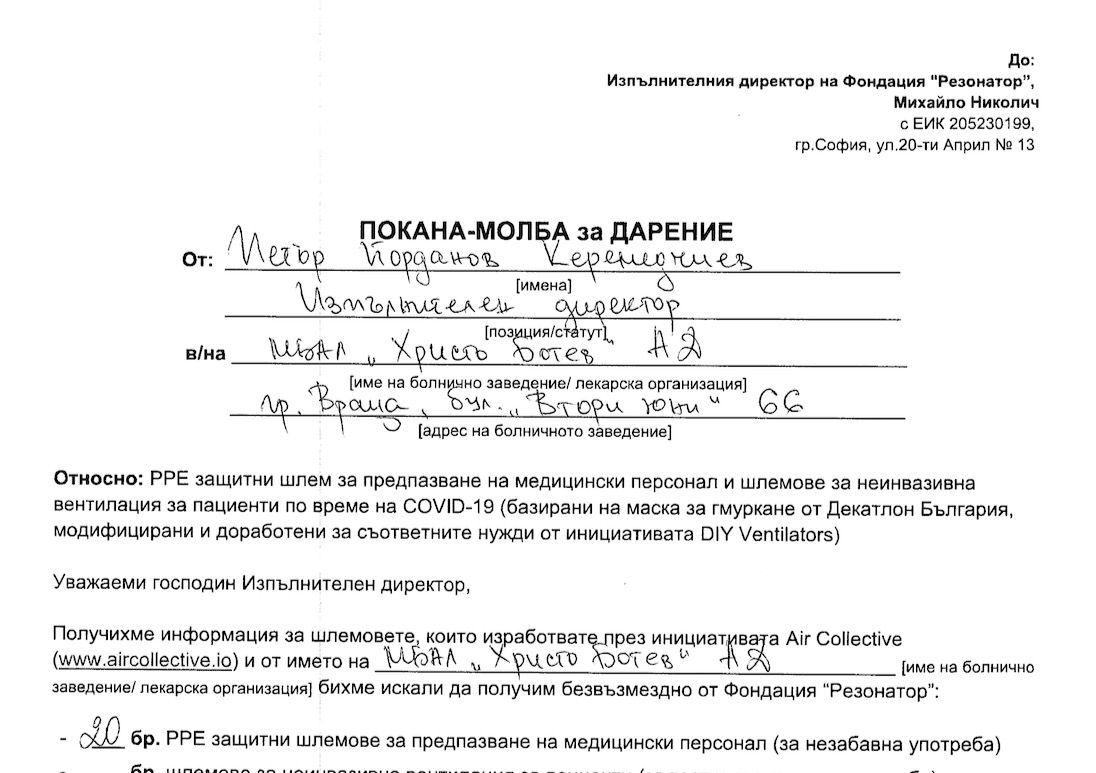 До:
Изпълнителния директор на Фондация "Резонатор",
Михайло Николич
с ЕИК 205230199,
гр.София, ул.20-ти Април № 13
ПОКАНА-МОЛБА за ДАРЕНИЕ
От: Петър Йорданов Керемедчиев
[имена]
Изпълнителен директор
[позиция/статут]
в/на МБАЛ „Христо Ботев" АД
[име на болнично заведение/ лекарска организация]
гр. Враца, бул. „Втори юни" 66
[адрес на болничното заведение]
Относно: PPE защитни шлем за предпазване на медицински персонал и шлемове за неинвазивна
вентилация за пациенти по време на COVID-19 (базирани на маска за гмуркане от Декатлон България,
модифицирани и доработени за съответните нужди от инициативата DIY Ventilators)
Уважаеми господин Изпълнителен директор,
Получихме информация за шлемовете, които изработвате през инициативата Air Collective
(www.aircollective.io) и от името на МБАЛ „Христо Ботев" АД [име на болнично
заведение/ лекарска организация] бихме искали да получим безвъзмездно от Фондация "Резонатор":
- 20 бр. PPE защитни шлемове за предпазване на медицински персонал (за незабавна употреба)